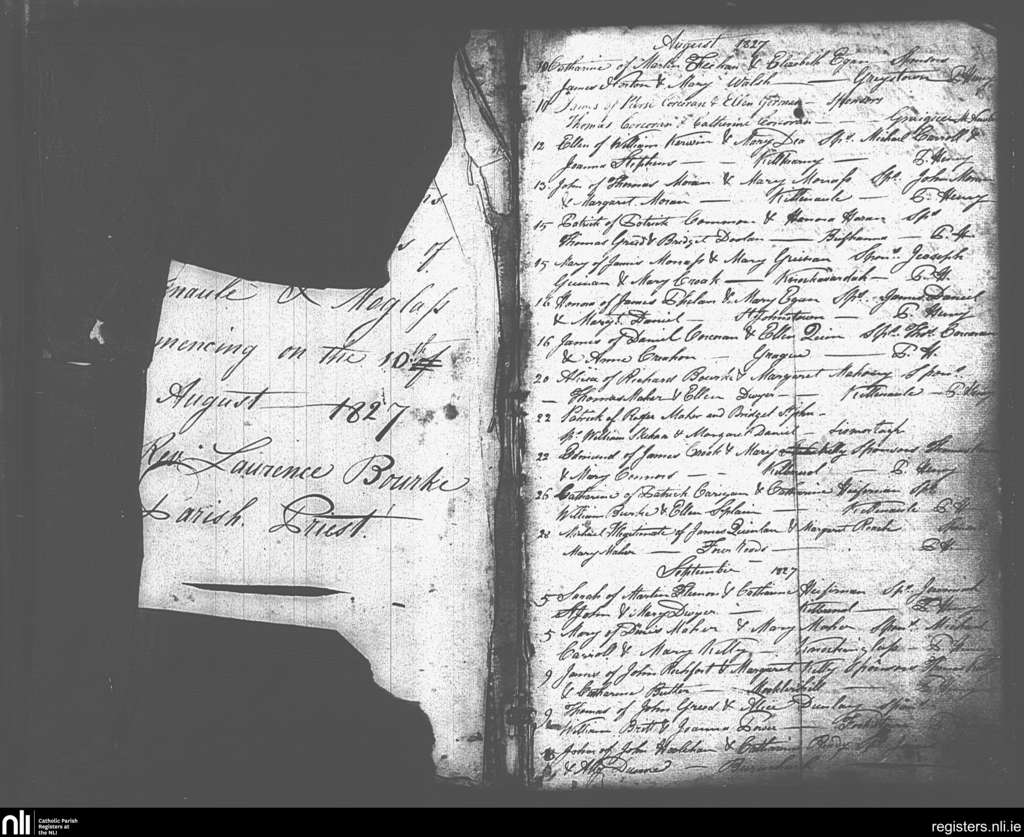 s of
naule & Moglass
mencing on the 10th of
August 1827
Rev. Laurence Bourke
Parish Priest.
August 1827
10 Catharine of Martin Feehan & Elisabeth Egan Sponsors
James Norton & Mary Walsh — Graystown P. Henry
10 James of Corcoran & Ellen Gorman — Sponsors
Thomas Corcoran & Catherine Corcoran —
12 Ellen of William Kerwin & Mary Dea Sps. Michael Carroll &
Joanna Stephens — Killheny — P. Henry
13 John of Thomas Moran & Mary Morrass Sps. John Moran
& Margaret Moran — Killenaule — P. Henry
15 Patrick of Patrick Common & Honora Horan Sps.
Thomas Greed & Bridget Doolan — — P. H.
15 Mary of James Morrass & Mary Guinan Spons. Joseph
Guinan & Mary Croak — P. H.
16 Honora of James Phelan & Mary Egan Sps. James Daniel
& Margt. Daniel — St Johnstown — P. Henry
16 James of Daniel Corcoran & Ellen Quinn Sps. Thos. Corcoran
& Anne Croohan — Graigue — P. H.
20 Alicia of Richard Bourke & Margaret Mahony Spons.
— Thomas Maher & Ellen Dwyer — Killenaule — P. Henry
22 Patrick of Roger Maher and Bridget St John —
Sps. William Skehan & Margaret Daniel — Lismortagh
22 Edmund of James Croak & Mary Kelly Sponsors
& Mary Connors — — P. Henry
26 Catharine of Patrick Corrigan & Catharine Heffernan Sps.
William Burke & Ellen Splain — Killenaule P. H.
28 Michael Illegitimate of James Quinlan & Margaret Roach
Mary Maher — Roads — P. H.
September 1827
5 Sarah of Martin & Catharine Heffernan Sps. Jeremiah
St John & Mary Dwyer — — P. Henry
5 Mary of Denis Maher & Mary Maher Spons. Michael
Carroll & Mary Kelly — P. Henry
9 James of John Rochfort & Margaret Kelly Sponsors
& Catharine Butler — Mocklershill — P. Henry
9 Thomas of John Greed & Alice Dunlany Spons.
William Brett & Joanna Power —
John of John Hoolehan & Catharine Sps.
&
nli
Catholic Parish
Registers at
the NLI
registers.nli.ie